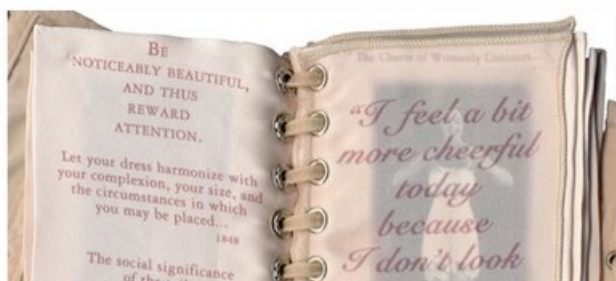 BE
NOTICEABLY BEAUTIFUL,
AND THUS
REWARD
ATTENTION.
Let your dress harmonize with
your complexion, your size, and
the circumstances in which
you may be placed...
1848
The social significance
of the
The Charm of Womanly Contours...
“I feel a bit
more cheerful
today
because
I don't look